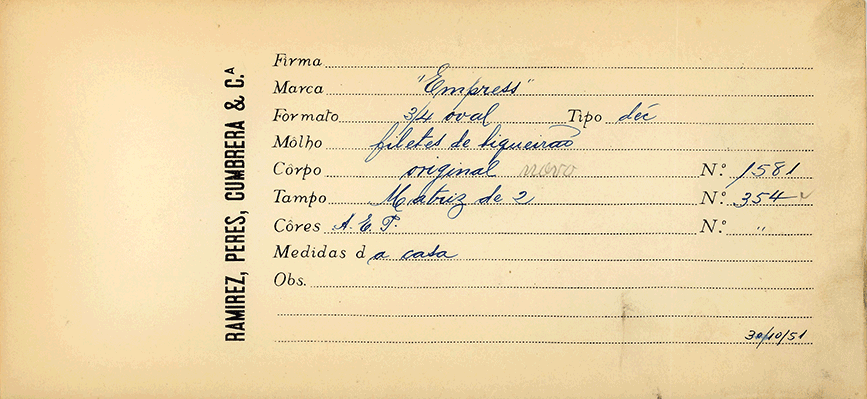 RAMIREZ, PERES, CUMBRERA & C.ᴬ
Firma
Marca "Empress"
Formato 3/4 oval Tipo déc
Môlho filetes de biqueirão
Côrpo original novo N.º 1581
Tampo Matriz de 2 N.º 354
Côres A. E. P. N.º "
Medidas da casa
Obs.
30/10/51